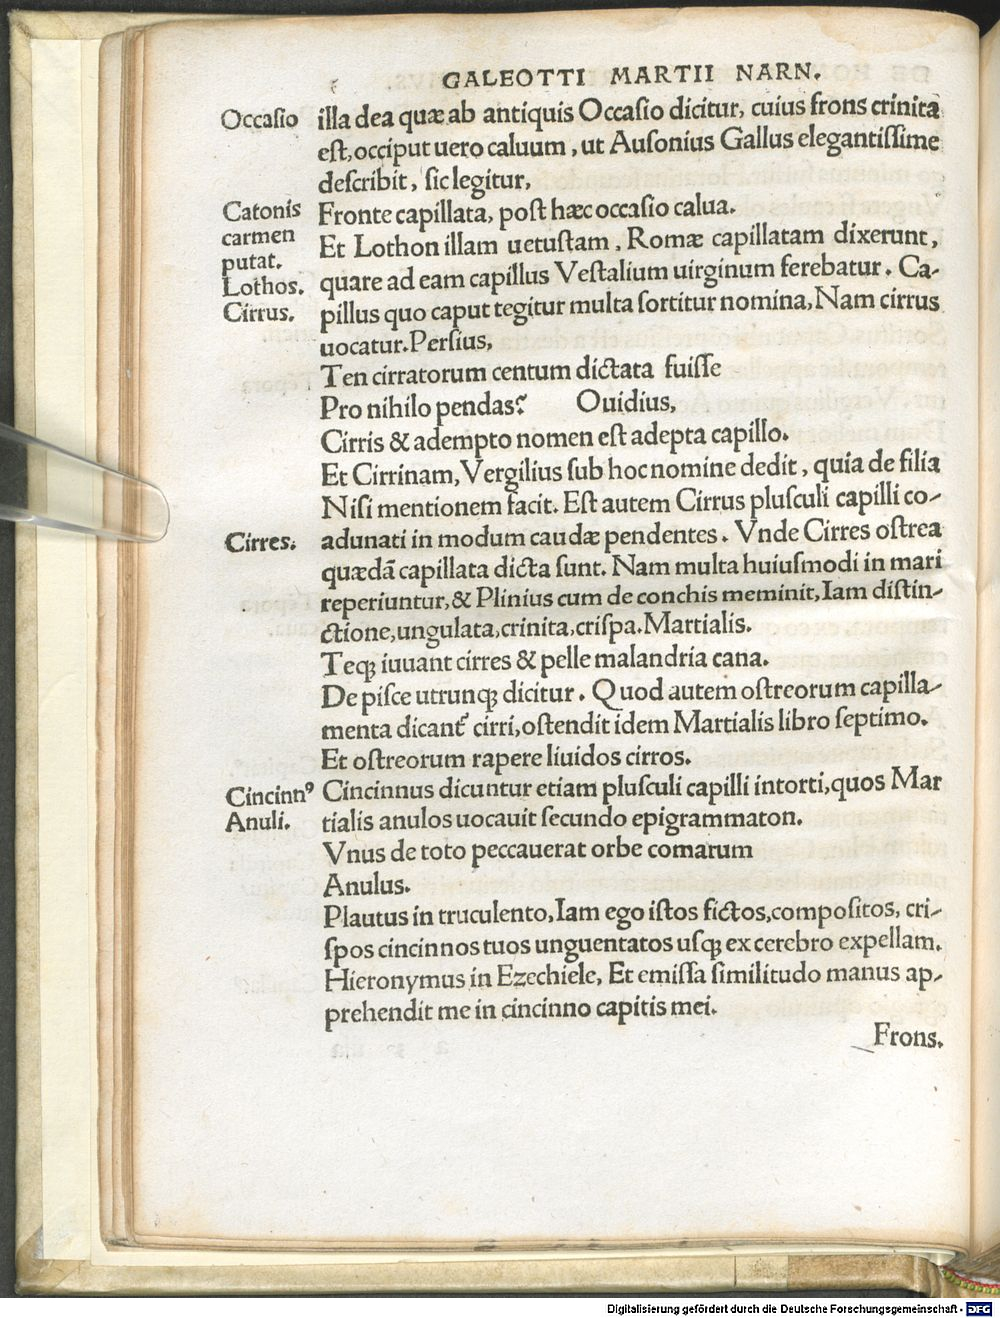 GALEOTTI MARTII NARN.
Occaſio
illa dea quæ ab antiquis Occaſio dicitur, cuius frons crinita
eſt, occiput uero caluum, ut Auſonius Gallus elegantiſſime
deſcribit, ſic legitur,
Catonis
carmen
putat.
Fronte capillata, poſt hæc occaſio calua.
Et Lothon illam uetuſtam, Romæ capillatam dixerunt,
Lothos.
quare ad eam capillus Veſtalium uirginum ferebatur. Ca-
Cirrus.
pillus quo caput tegitur multa ſortitur nomina, Nam cirrus
uocatur. Perſius,
Ten cirratorum centum dictata fuiſſe
Pro nihilo pendas? Ouidius,
Cirris & adempto nomen eſt adepta capillo.
Et Cirrinam, Vergilius ſub hoc nomine dedit, quia de filia
Niſi mentionem facit. Eſt autem Cirrus pluſculi capilli co-
Cirres.
adunati in modum caudæ pendentes. Vnde Cirres oſtrea
quædã capillata dicta ſunt. Nam multa huiuſmodi in mari
reperiuntur, & Plinius cum de conchis meminit, Iam diſtin-
ctione, ungulata, crinita, criſpa. Martialis.
Teqꝫ iuuant cirres & pelle malandria cana.
De piſce utrunqꝫ dicitur. Quod autem oſtreorum capilla-
menta dicant᷑ cirri, oſtendit idem Martialis libro ſeptimo.
Et oſtreorum rapere liuidos cirros.
Cincinnꝰ
Anuli.
Cincinnus dicuntur etiam pluſculi capilli intorti, quos Mar
tialis anulos uocauit ſecundo epigrammaton.
Vnus de toto peccauerat orbe comarum
Anulus.
Plautus in truculento, Iam ego iſtos fictos, compoſitos, cri-
ſpos cincinnos tuos unguentatos uſqꝫ ex cerebro expellam.
Hieronymus in Ezechiele, Et emiſſa ſimilitudo manus ap-
prehendit me in cincinno capitis mei.
Frons.
Digitalisierung gefördert durch die Deutsche Forschungsgemeinschaft - DFG